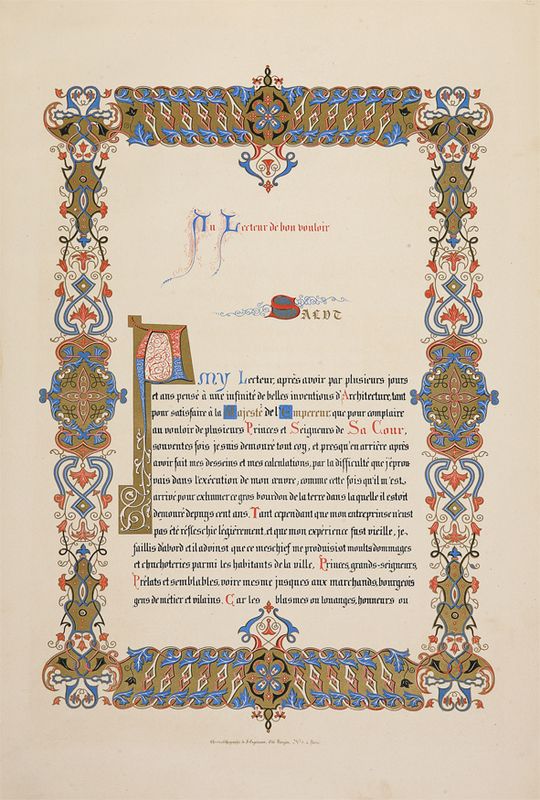 Au Lecteur de bon vouloir
SALUT
AMY Lecteur, après avoir par plusieurs jours
et ans pensé à une infinité de belles inventions d'Architecture, tant
pour satisfaire à la Majesté de l'Empereur que pour complaire
au vouloir de plusieurs Princes et Seigneurs de Sa Cour,
souventes fois je suis demouré tout coy, et presqu'en arrière après
avoir fait mes desseins et mes calculations, par la difficulté que j'eprou-
vais dans l'exécution de mon œuvre, comme cette fois qu'il m'est
arrivé pour exhumer ce gros bourdon de la terre dans laquelle il estoit
demouré depuys cent ans. Tant cependant que mon entreprinse n'eust
pas été réfleschie légièrement, et que mon expérience fust vieille, je
faillis d'abord et il advinst que ce meschief me produisist moults dommages
et chuchoteries parmi les habitants de la ville, Princes, grands-seigneurs,
Prélats et semblables, voire mesme jusques aux marchands, bourgeois
gens de métier et vilains. Car les blasmes ou louanges, honneurs ou
Chromolithographie de